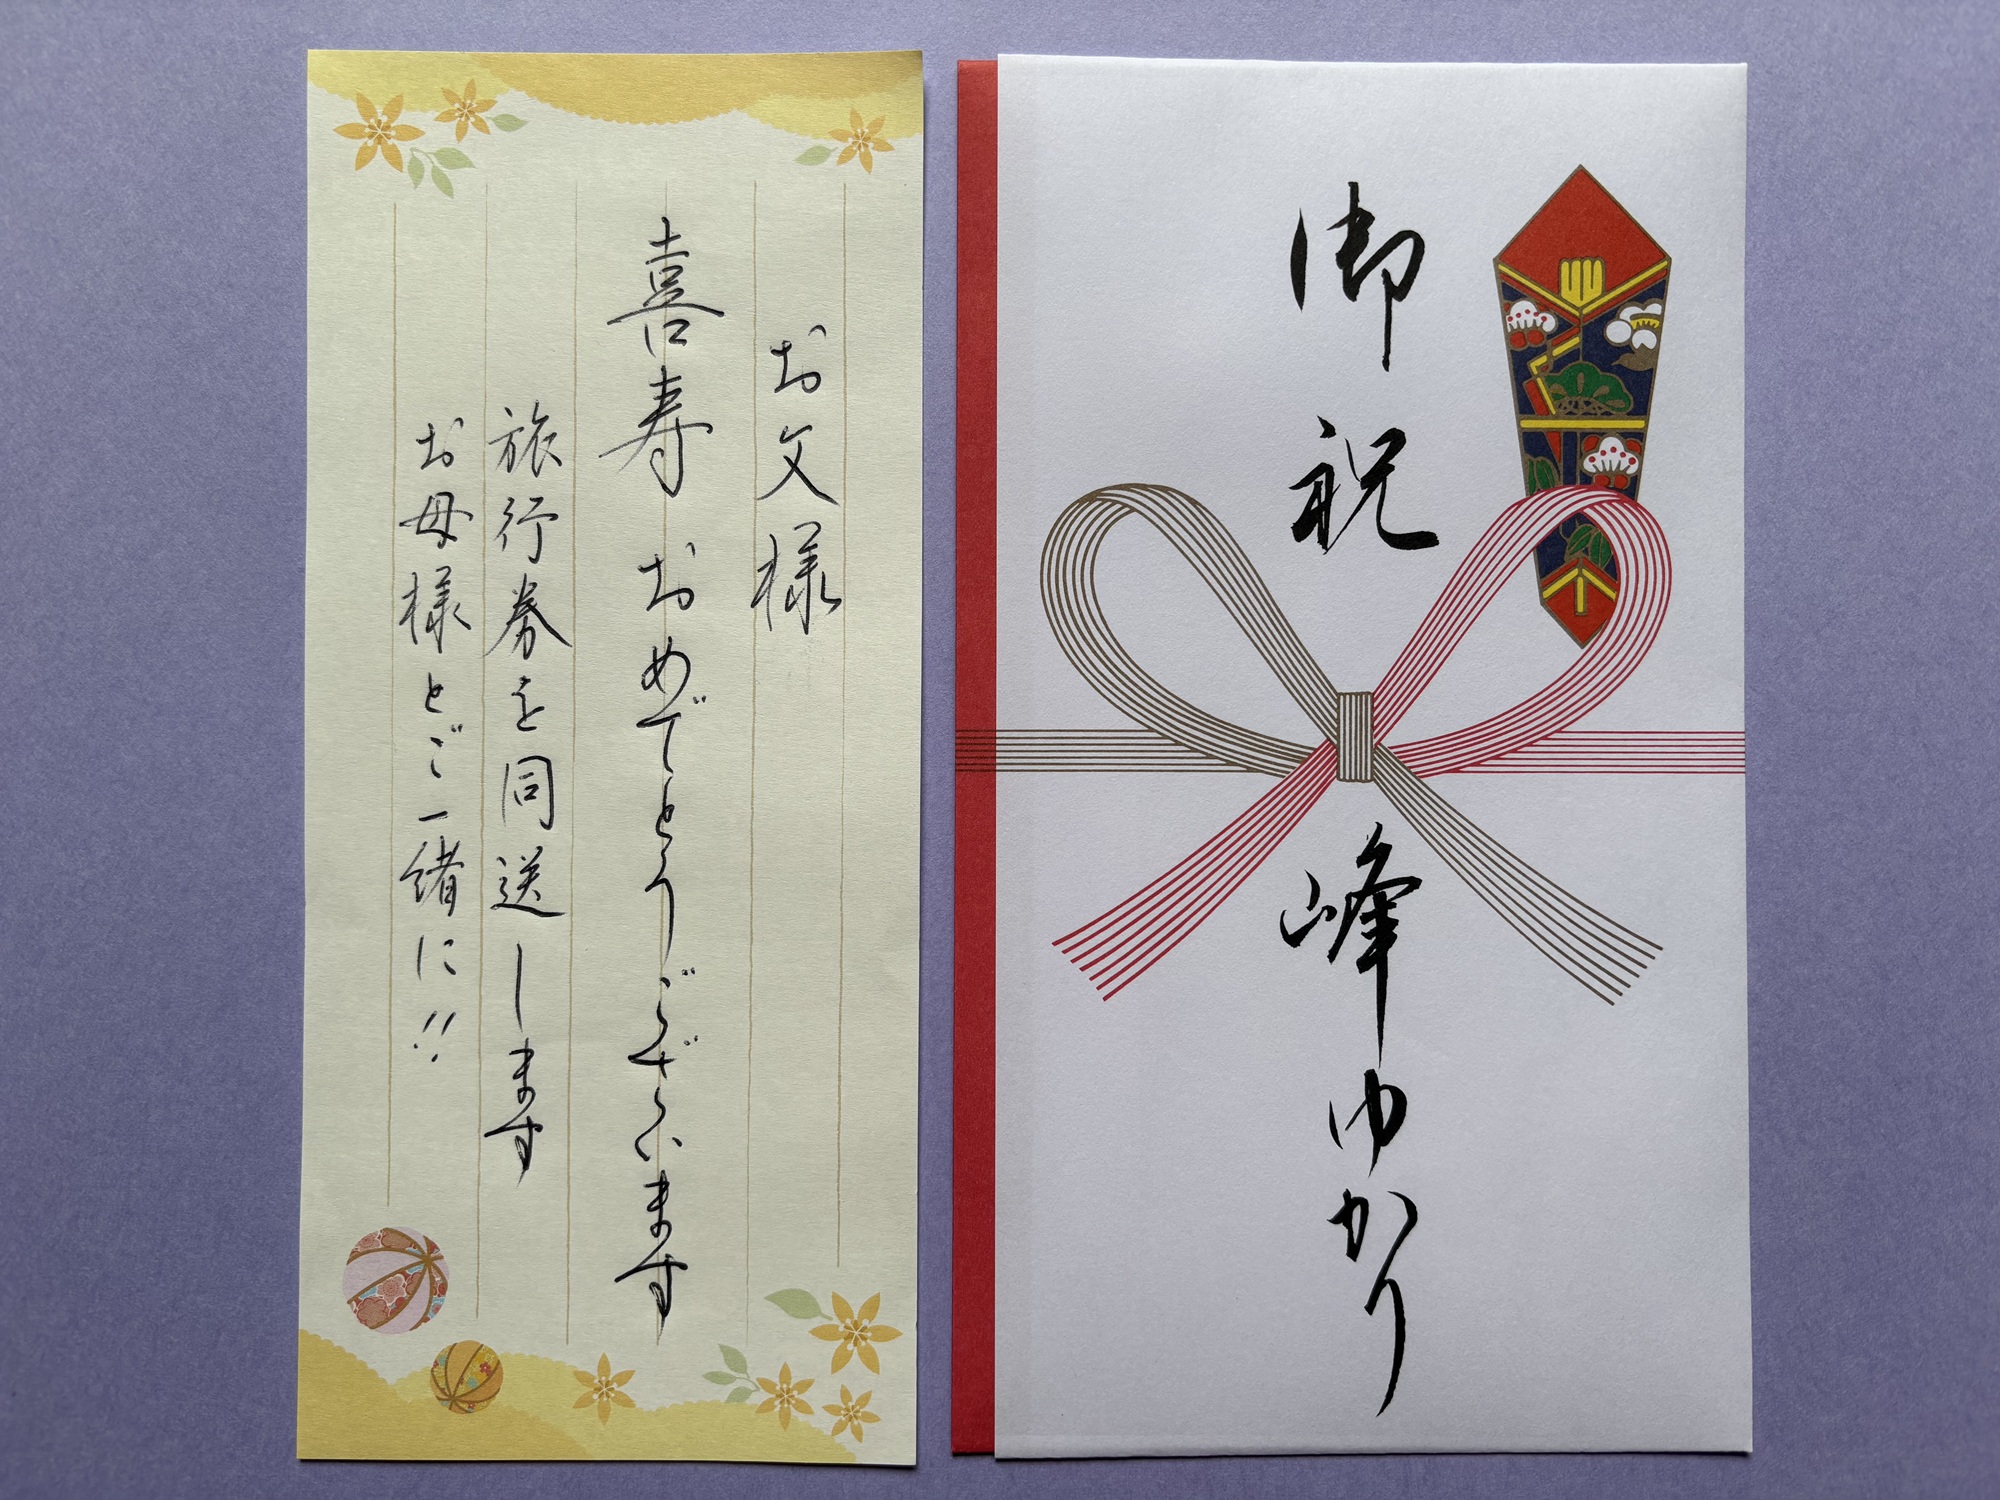 お父様
喜寿 おめでとうございます
旅行券を同送します
お母様とご一緒に!!
御祝
峰ゆかり